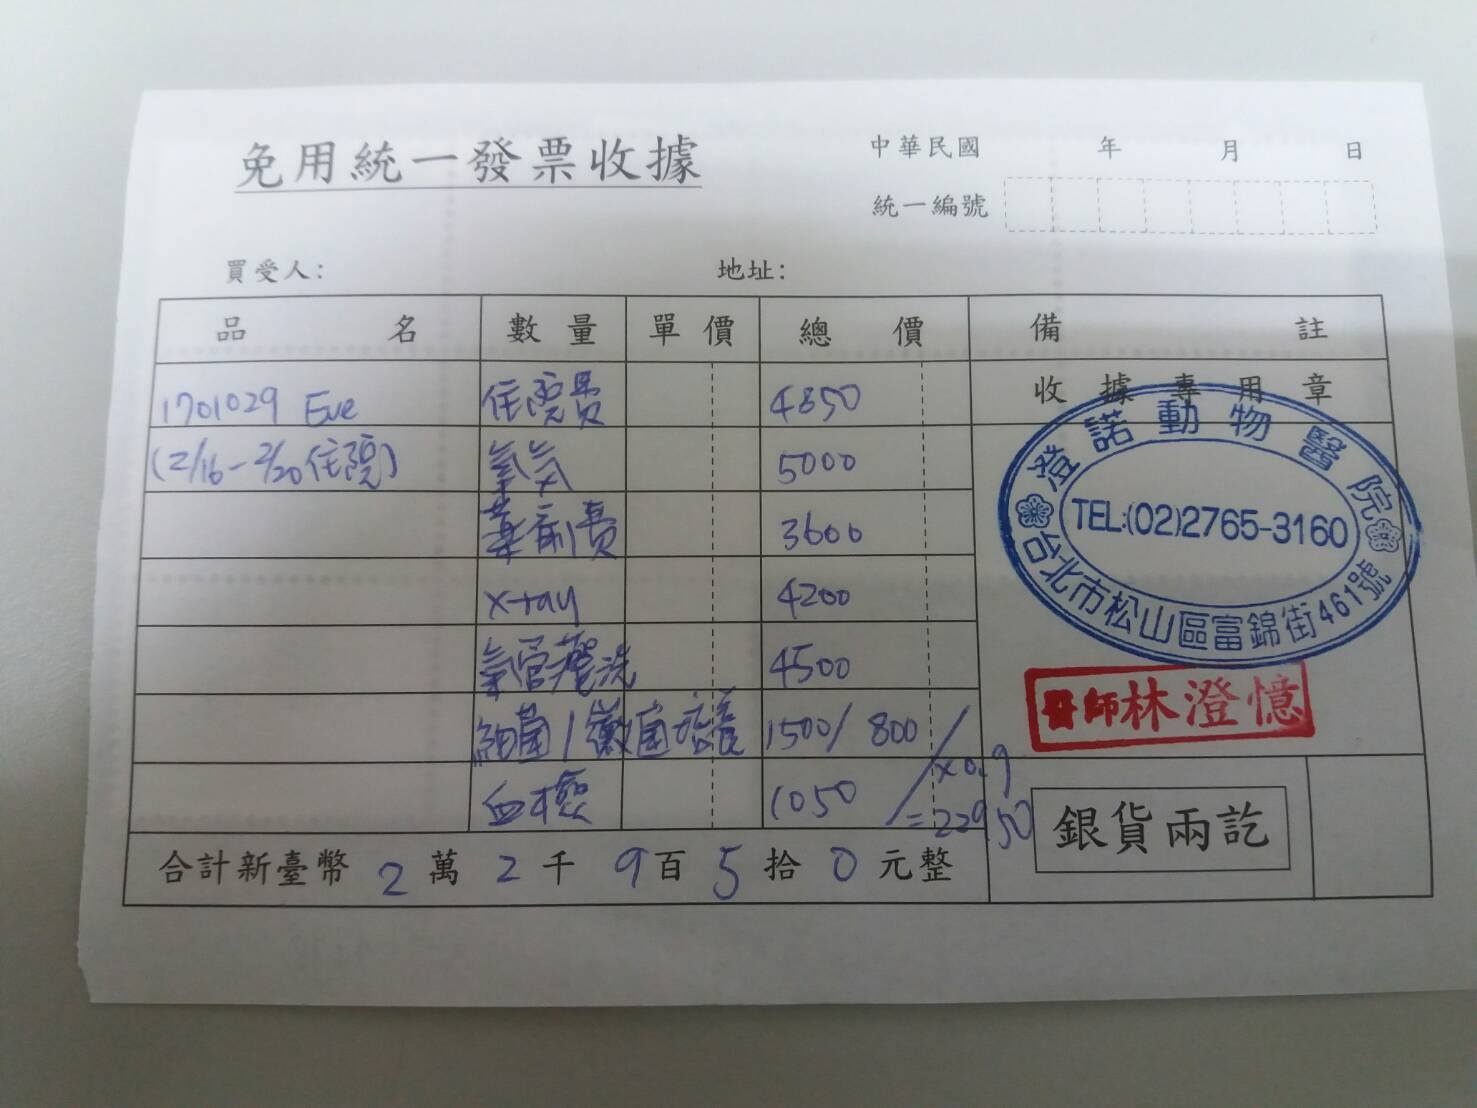 免用統一發票收據
中華民國 年 月 日
統一編號
買受人: 地址:
品名 數量 單價 總價 備註
1701029 Eve 住院費 4850 收據專用章
(2/16-2/20住院) 氧氣 5000
藥劑費 3600
x-ray 4200
氣管灌洗 4500
細菌/黴菌培養 1500/800
血檢 1050
x0.9
=22950
合計新臺幣 2萬2千9百5拾0元整
澄諾動物醫院
TEL:(02)2765-3160
台北市松山區富錦街461號
醫師林澄憶
銀貨兩訖